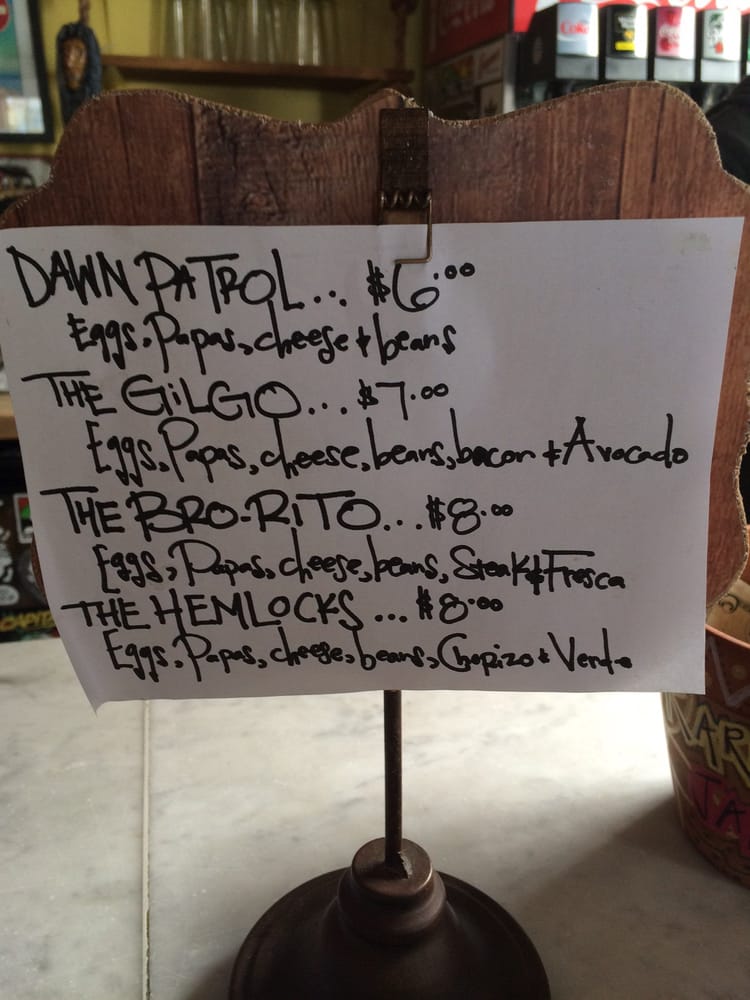 DAWN PATROL... $6.00
Eggs, Papas, cheese & beans
THE GILGO... $7.00
Eggs, Papas, cheese, beans, bacon & Avocado
THE BRO-RITO... $8.00
Eggs, Papas, cheese, beans, Steak & Fresca
THE HEMLOCKS... $8.00
Eggs, Papas, cheese, beans, Chorizo & Verde
Coke
NAR
TA